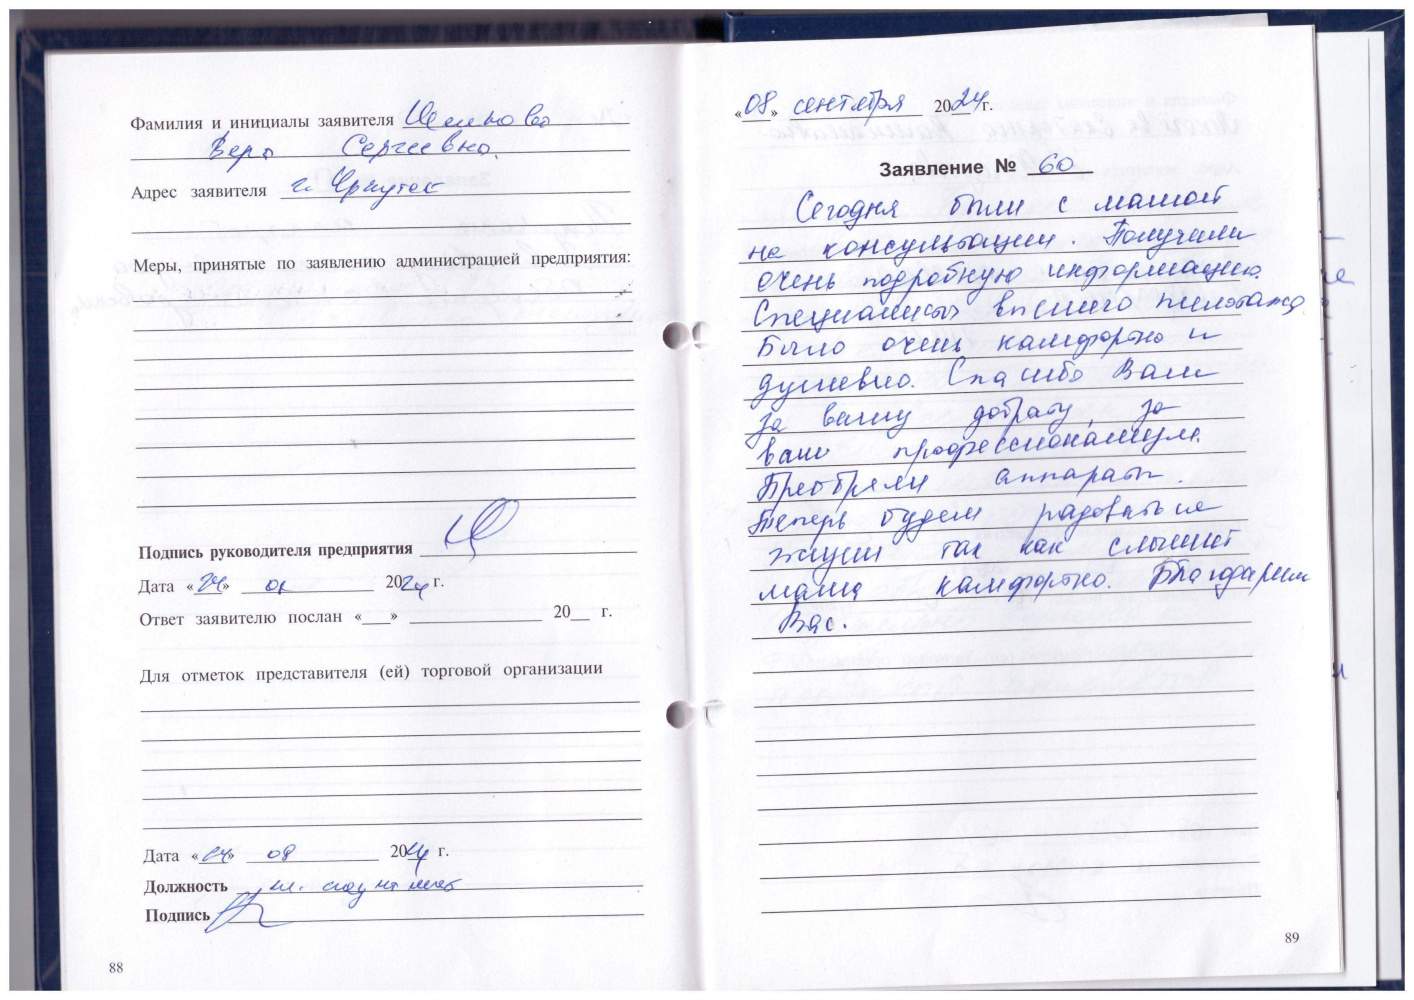 Фамилия и инициалы заявителя
Вера Сергеевна.
Адрес заявителя г. Иркутск
Меры, принятые по заявлению администрацией предприятия:
Подпись руководителя предприятия
Дата «24» 2024 г.
Ответ заявителю послан «__» 20__ г.
Для отметок представителя (ей) торговой организации
Дата «24» 09 2024 г.
Должность
Подпись
88
«08» сентября 2024г.
Заявление № 60
Сегодня были с мамой
на консультации. Получили
очень подробную информацию.
Специалисты высшего пилотажа.
Было очень камфортно и
душевно. Спасибо Вам
за вашу доброту, за
ваш профессионализм.
Преобрели аппараты.
Теперь будем радоваться
жизни так как слышит
мама камфортно. Благодарим
Вас.
89